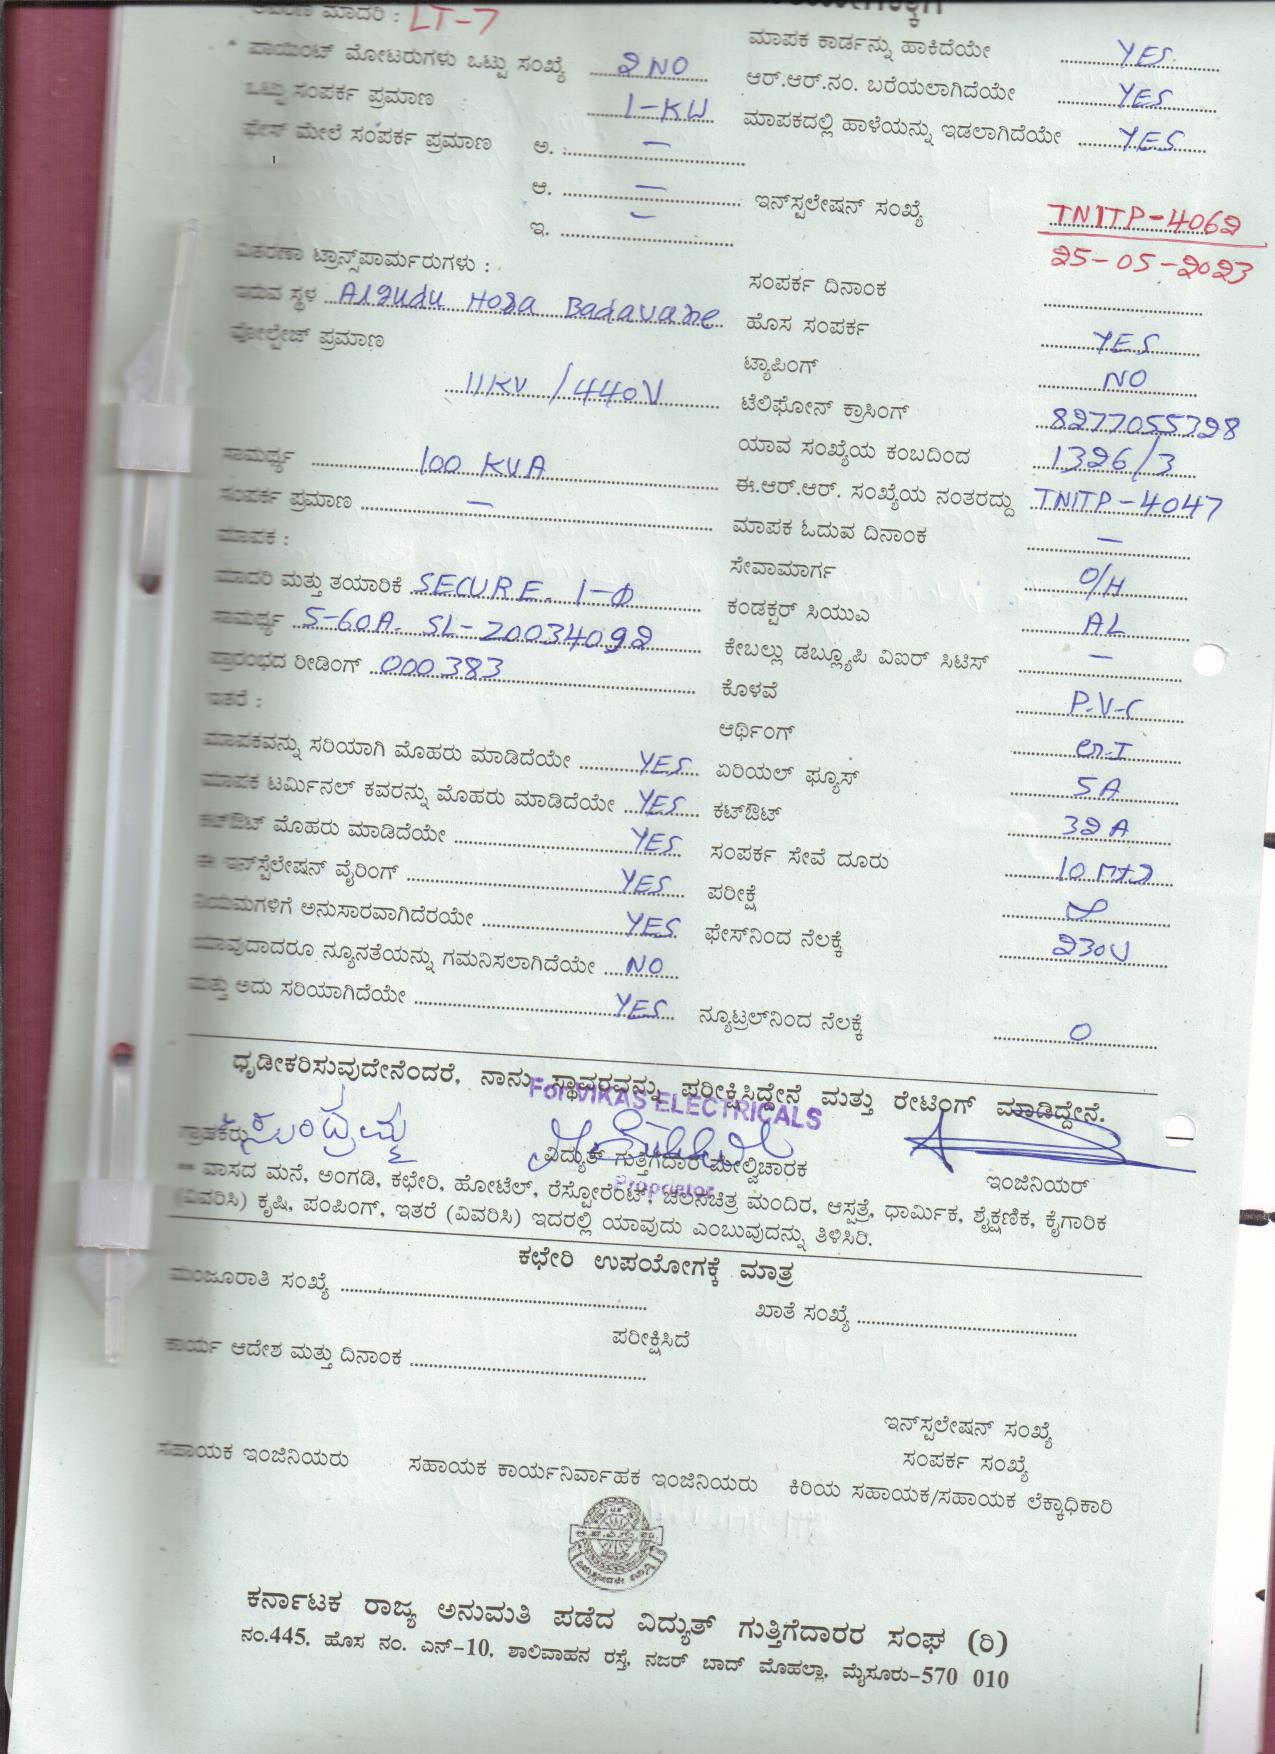 ಮಾದರಿ : LT-7
* ಪಾಯಿಂಟ್ ಮೋಟರುಗಳು ಒಟ್ಟು ಸಂಖ್ಯೆ 2 NO
ಒಟ್ಟು ಸಂಪರ್ಕ ಪ್ರಮಾಣ 1-KW
ಫೇಸ್ ಮೇಲೆ ಸಂಪರ್ಕ ಪ್ರಮಾಣ ಅ. : —
ಆ. —
ಇ. —
ವಿತರಣಾ ಟ್ರಾನ್ಸ್‌ಪಾರ್ಮರುಗಳು :
ಇರುವ ಸ್ಥಳ Algudu Hosa Badavane
ವೋಲ್ಟೇಜ್ ಪ್ರಮಾಣ
11KV / 440V
ಸಾಮರ್ಥ್ಯ 100 KVA
ಸಂಪರ್ಕ ಪ್ರಮಾಣ —
ಮಾಪಕ :
ಮಾದರಿ ಮತ್ತು ತಯಾರಿಕೆ SECURE. 1-Φ
ಸಾಮರ್ಥ್ಯ 5-60A. SL-20034092
ಪ್ರಾರಂಭದ ರೀಡಿಂಗ್ 000383
ಇತರೆ :
ಮಾಪಕವನ್ನು ಸರಿಯಾಗಿ ಮೊಹರು ಮಾಡಿದೆಯೇ YES
ಮಾಪಕ ಟರ್ಮಿನಲ್ ಕವರನ್ನು ಮೊಹರು ಮಾಡಿದೆಯೇ YES
ಕಟ್‌ಔಟ್ ಮೊಹರು ಮಾಡಿದೆಯೇ YES
ಈ ಇನ್‌ಸ್ಪೆಲೇಷನ್ ವೈರಿಂಗ್ YES
ನಿಯಮಗಳಿಗೆ ಅನುಸಾರವಾಗಿದೆರಯೇ YES
ಯಾವುದಾದರೂ ನ್ಯೂನತೆಯನ್ನು ಗಮನಿಸಲಾಗಿದೆಯೇ NO
ಮತ್ತು ಅದು ಸರಿಯಾಗಿದೆಯೇ YES
ಮಾಪಕ ಕಾರ್ಡನ್ನು ಹಾಕಿದೆಯೇ YES
ಆರ್.ಆರ್.ನಂ. ಬರೆಯಲಾಗಿದೆಯೇ YES
ಮಾಪಕದಲ್ಲಿ ಹಾಳೆಯನ್ನು ಇಡಲಾಗಿದೆಯೇ YES
ಇನ್‌ಸ್ಪಲೇಷನ್ ಸಂಖ್ಯೆ TNITP-4062
25-05-2023
ಸಂಪರ್ಕ ದಿನಾಂಕ
ಹೊಸ ಸಂಪರ್ಕ YES
ಟ್ಯಾಪಿಂಗ್ NO
ಟೆಲಿಫೋನ್ ಕ್ರಾಸಿಂಗ್ 8277055328
ಯಾವ ಸಂಖ್ಯೆಯ ಕಂಬದಿಂದ 1326/3
ಈ.ಆರ್.ಆರ್. ಸಂಖ್ಯೆಯ ನಂತರದ್ದು TNITP-4047
ಮಾಪಕ ಓದುವ ದಿನಾಂಕ —
ಸೇವಾಮಾರ್ಗ O/H
ಕಂಡಕ್ಟರ್ ಸಿಯುಎ AL
ಕೇಬಲ್ಲು ಡಬ್ಲ್ಯೂಪಿ ವಿಐರ್ ಸಿಟಿಸ್ —
ಕೊಳವೆ P.V-C
ಆರ್ಥಿಂಗ್
ಏರಿಯಲ್ ಫ್ಯೂಸ್ 5A
ಕಟ್‌ಔಟ್ 32A
ಸಂಪರ್ಕ ಸೇವೆ ದೂರು 10
ಪರೀಕ್ಷೆ
ಫೇಸ್‌ನಿಂದ ನೆಲಕ್ಕೆ 230V
ನ್ಯೂಟ್ರಲ್‌ನಿಂದ ನೆಲಕ್ಕೆ 0
ಧೃಡೀಕರಿಸುವುದೇನೆಂದರೆ, ನಾನು ಸ್ಥಾವರವನ್ನು ಪರೀಕ್ಷಿಸಿದ್ದೇನೆ ಮತ್ತು ರೇಟಿಂಗ್ ಮಾಡಿದ್ದೇನೆ.
For VIKAS ELECTRICALS
ಗ್ರಾಹಕರು ವಿದ್ಯುತ್ ಗುತ್ತಿಗೆದಾರ ಮೇಲ್ವಿಚಾರಕ ಇಂಜಿನಿಯರ್
Proprietor
** ವಾಸದ ಮನೆ, ಅಂಗಡಿ, ಕಛೇರಿ, ಹೋಟೆಲ್, ರೆಸ್ಟೋರೆಂಟ್, ಚಲನಚಿತ್ರ ಮಂದಿರ, ಆಸ್ಪತ್ರೆ, ಧಾರ್ಮಿಕ, ಶೈಕ್ಷಣಿಕ, ಕೈಗಾರಿಕ
(ವಿವರಿಸಿ) ಕೃಷಿ, ಪಂಪಿಂಗ್, ಇತರೆ (ವಿವರಿಸಿ) ಇದರಲ್ಲಿ ಯಾವುದು ಎಂಬುವುದನ್ನು ತಿಳಿಸಿರಿ.
ಕಛೇರಿ ಉಪಯೋಗಕ್ಕೆ ಮಾತ್ರ
ಮಂಜೂರಾತಿ ಸಂಖ್ಯೆ ಖಾತೆ ಸಂಖ್ಯೆ
ಪರೀಕ್ಷಿಸಿದೆ
ಕಾರ್ಯ ಆದೇಶ ಮತ್ತು ದಿನಾಂಕ
ಇನ್‌ಸ್ಪಲೇಷನ್ ಸಂಖ್ಯೆ
ಸಂಪರ್ಕ ಸಂಖ್ಯೆ
ಸಹಾಯಕ ಇಂಜಿನಿಯರು ಸಹಾಯಕ ಕಾರ್ಯನಿರ್ವಾಹಕ ಇಂಜಿನಿಯರು ಕಿರಿಯ ಸಹಾಯಕ/ಸಹಾಯಕ ಲೆಕ್ಕಾಧಿಕಾರಿ
ಕರ್ನಾಟಕ ರಾಜ್ಯ ಅನುಮತಿ ಪಡೆದ ವಿದ್ಯುತ್ ಗುತ್ತಿಗೆದಾರರ ಸಂಘ (ರಿ)
ನಂ.445, ಹೊಸ ನಂ. ಎನ್-10, ಶಾಲಿವಾಹನ ರಸ್ತೆ, ನಜರ್ ಬಾದ್ ಮೊಹಲ್ಲಾ, ಮೈಸೂರು-570 010